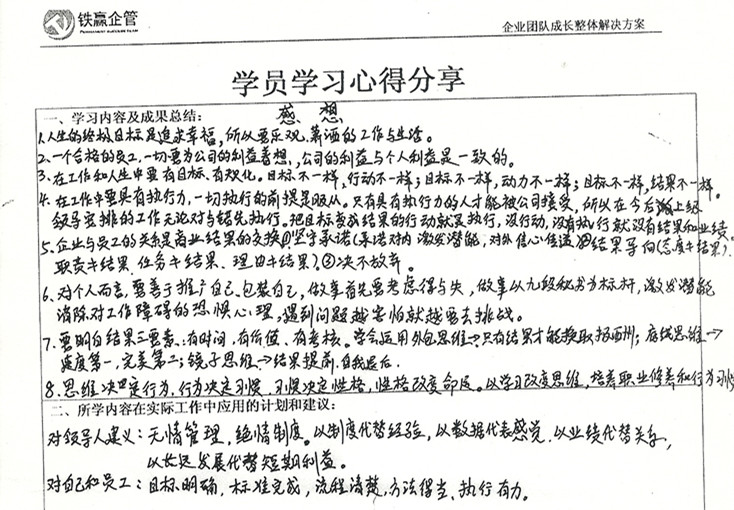 铁赢企管
企业团队成长整体解决方案
学员学习心得分享
一、学习内容及成果总结: 感 想
1.人生的终极目标是追求幸福,所以要乐观、潇洒的工作与生活。
2.一个合格的员工,一切要为公司的利益着想,公司的利益与个人利益是一致的。
3.在工作和人生中要有目标、有观化。目标不一样,行动不一样;目标不一样,动力不一样;目标不一样,结果不一样。
4.在工作中要具有执行力,一切执行的前提是服从。只有具有执行力的人才能被公司接受,所以在今后 上级
领导安排的工作无论对与错先执行。把目标变成结果的行动就是执行,没行动,没有执行就没有结果和业绩
5.企业与员工的关系是商业结果的交换①坚守承诺(承诺对内激发潜能,对外信心传递②结果导向(态度≠结果).
职责≠结果、任务≠结果、理由≠结果).③决不放弃。
6.对个人而言,要善于推广自己、包装自己,做事首先要考虑得与失,做事以九段秘书为标杆,激发潜能
消除对工作障碍的恐惧心理,遇到问题越害怕就越要去挑战。
7.要明白结果三要素:有时间、有价值、有考核。学会运用外包思维→只有结果才能换取报酬;底线思维→
速度第一,完美第二;镜子思维→结果提前、自我退后.
8.思维决定行为,行为决定习惯,习惯决定性格,性格改变命运。以学习改变思维,培养职业修养和行为习惯
二、所学内容在实际工作中应用的计划和建议:
对领导人建义:无情管理,绝情制度。以制度代替经验,以数据代表感觉,以业绩代替关系,
以长远发展代替短期利益。
对自己和员工:目标明确,标准完成,流程清楚,方法得当、执行有力。